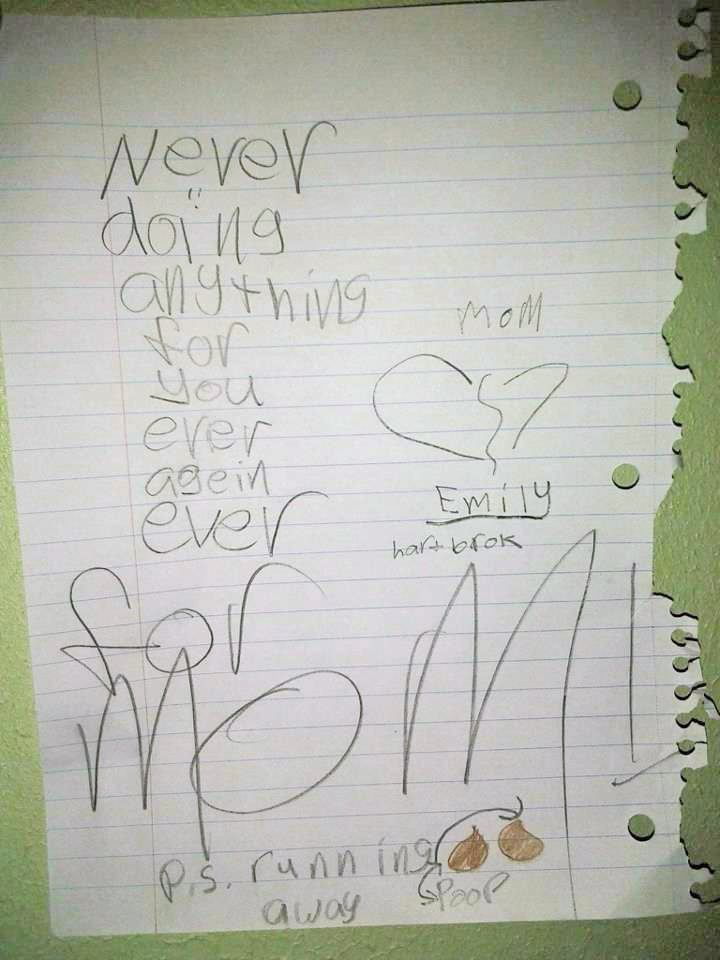 Never
doïng
anything
for
you
ever
agein
ever
mom
Emily
hart brok
for
MOM!
p.s. running
away
poop